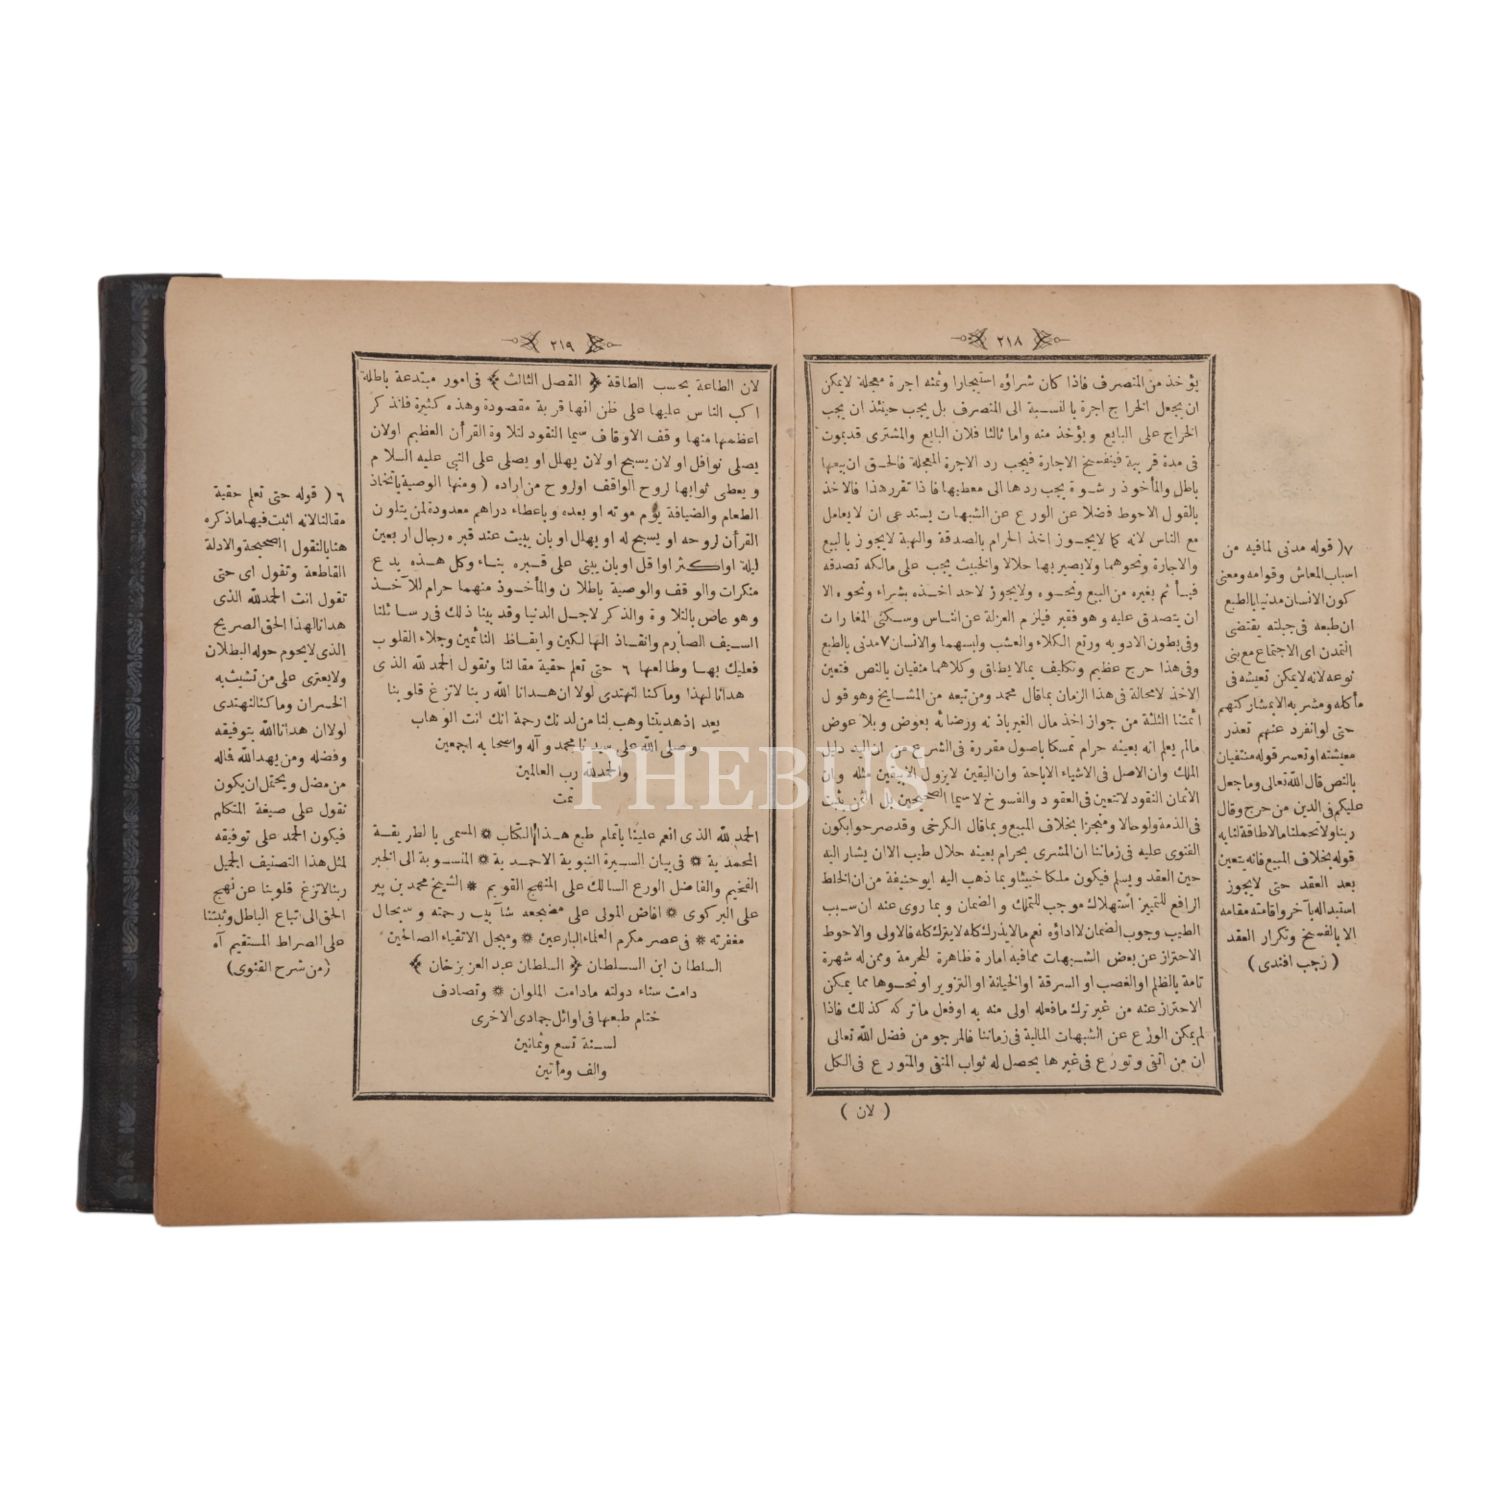 ٢١٨
يؤخذ من المتصرف فاذا كان شراؤه استيجارا وثمنه اجرة معجلة لايمكن
ان يجعل الخراج اجرة بالنسبة الى المتصرف بل يجب حينئذ ان يجب
الخراج على البايع ويؤخذ منه واما ثالثا فلان البايع والمشترى قديموت
فى مدة قريبة فينفسخ الاجارة فيجب رد الاجرة المعجلة فالحق ان بيعها
باطل والمأخوذ رشوة يجب ردها الى معطيها فاذا تقرر هذا فالاخذ
بالقول الاحوط فضلا عن الورع عن الشبهات يستدعى ان لايعامل
مع الناس لانه كما لايجوز اخذ الحرام بالصدقة والهبة لايجوز بالبيع
والاجارة ونحوهما ولايصير بها حلالا والخبيث يجب على مالكه تصدقه
فيأثم بغيره من البيع ونحوه ولايجوز لاحد اخذه بشراء ونحوه الا
ان يتصدق عليه وهو فقير فيلزم العزلة عن الناس وسكنى المغارات
وفى بطون الاودية ورتع الكلاء والعشب ولبسهما والانسان ٧ مدنى بالطبع
وفى هذا حرج عظيم وتكليف بمالا يطاق وكلاهما منفيان بالنص فتعين
الاخذ لامحالة فى هذا الزمان بما قال محمد ومن تبعه من المشايخ وهو قول
أئمتنا الثلثة من جواز اخذ مال الغير باذنه ورضائه بعوض وبلا عوض
مالم يعلم انه بعينه حرام تمسكا باصول مقررة فى الشرع من ان اليد دليل
الملك وان الاصل فى الاشياء الاباحة وان اليقين لايزول الابيقين مثله وان
الأثمان النقود لاتتعين فى العقود والفسوخ لاسيما الصحيحين بل الثمن يثبت
فى الذمة ولو حالا ومنجزا بخلاف المبيع وبما قال الكرخى وقدصرحوا بكون
الفتوى عليه فى زماننا ان المشرى بحرام بعينه حلال طيب الا ان يشار اليه
حين العقد ويسلم فيكون ملكا خبيثا وبما ذهب اليه ابو حنيفة من ان الخلط
الرافع للتمييز استهلاك موجب للتملك والضمان وبما روى عنه ان سبب
الطيب وجوب الضمان لااداؤه نعم مالايدرك كله لايترك كله فالاولى والاحوط
الاحتراز عن بعض الشبهات ممافيه امارة ظاهرة للحرمة وممن له شهرة
تامة بالظلم او الغصب او السرقة او الخيانة او التزوير او نحوها مما يمكن
الاحتراز عنه من غير ترك مافعله اولى منه به او فعل ماتركه كذلك فاذا
لم يمكن الورع عن الشبهات المالية فى زماننا فالمرجو من فضل الله تعالى
ان من اتقى وتورع فى غيرها يحصل له ثواب المتقى والمتورع فى الكل
( لان )
٧( قوله مدنى لمافيه من
اسباب المعاش وقوامه ومعنى
كون الانسان مدنيا بالطبع
ان طبعه فى جبلته يقتضى
التمدن اى الاجتماع مع بنى
نوعه لانه لايمكن تعيشه فى
مأكله ومشربه الابمشاركتهم
حتى لوانفرد عنهم تعذر
معيشته او تعسر قوله منتفيان
بالنص قال الله تعالى وماجعل
عليكم فى الدين من حرج وقال
ربنا ولا تحملنا مالاطاقة لنا به
قوله بخلاف المبيع فانه يتعين
بعد العقد حتى لايجوز
استبداله بآخر واقامته مقامه
الا بالفسخ وتكرار العقد
( رجب افندى )
٢١٩
لان الطاعة بحسب الطاقة ﴿ الفصل الثالث ﴾ فى امور مبتدعة باطلة
اكب الناس عليها على ظن انها قربة مقصودة وهذه كثيرة فلنذكر
اعظمها منها وقف الاوقاف سيما النقود لتلاوة القرأن العظيم اولان
يصلى نوافل او لان يسبح او لان يهلل او يصلى على النبى عليه السلام
ويعطى ثوابها لروح الواقف او لروح من اراده ( ومنها الوصية باتخاذ
الطعام والضيافة يوم موته او بعده وباعطاء دراهم معدودة لمن يتلون
القرأن لروحه او يسبح له او يهلل او بان يبيت عند قبره رجال اربعين
ليلة او اكثر او اقل او بان يبنى على قبره بناء وكل هذه بدع
منكرات والوقف والوصية باطلان والمأخوذ منهما حرام للآخذ
وهو عاص بالتلاوة والذكر لاجل الدنيا وقد بينا ذلك فى رسائلنا
السيف الصارم وانقاذ الهالكين وايقاظ النائمين وجلاء القلوب
فعليك بها وطالعها ٦ حتى تعلم حقية مقالنا وتقول الحمد لله الذى
هدانا لهذا وماكنا لنهتدى لولا ان هدانا الله ربنا لاتزغ قلوبنا
بعد اذ هديتنا وهب لنا من لدنك رحمة انك انت الوهاب
وصلى الله على سيدنا محمد وآله واصحابه اجمعين
والحمد لله رب العالمين
تمت
الحمد لله الذى انعم علينا باتمام طبع هذا الكتاب * المسمى بالطريقة
المحمدية * فى بيان السيرة النبوية الاحمدية * المنسوبة الى الحبر
الفخيم والفاضل الورع السالك على المنهج القويم * الشيخ محمد بن پير
على البركوى * افاض المولى على مضجعه شآبيب رحمته وسجال
مغفرته * فى عصر مكرم العلماء البارعين * ومبجل الاتقياء الصالحين
السلطان ابن السلطان ﴿ السلطان عبد العزيز خان ﴾
دامت سناء دولته مادامت الملوان * وتصادف
ختام طبعها فى اوائل جمادى الاخرى
لسنة تسع وثمانين
والف ومأتين
٦ ( قوله حتى تعلم حقية
مقالنا لانه اثبت فيها ماذكره
هنا بالنقول الصحيحة والادلة
القاطعة وتقول اى حتى
تقول انت الحمد لله الذى
هدانا لهذا الحق الصريح
الذى لايحوم حوله البطلان
ولايعترى على من تشبث به
الخسران وماكنا لنهتدى
لولا ان هدانا الله بتوفيقه
وفضله ومن يهد الله فاله
من مضل ويحتمل ان يكون
نقول على صيغة المتكلم
فيكون الحمد على توفيقه
لمثل هذا التصنيف الجميل
ربنا لاتزغ قلوبنا عن نهج
الحق الى اتباع الباطل وثبتنا
على الصراط المستقيم آه
( من شرح القنوى )
PHEBUS